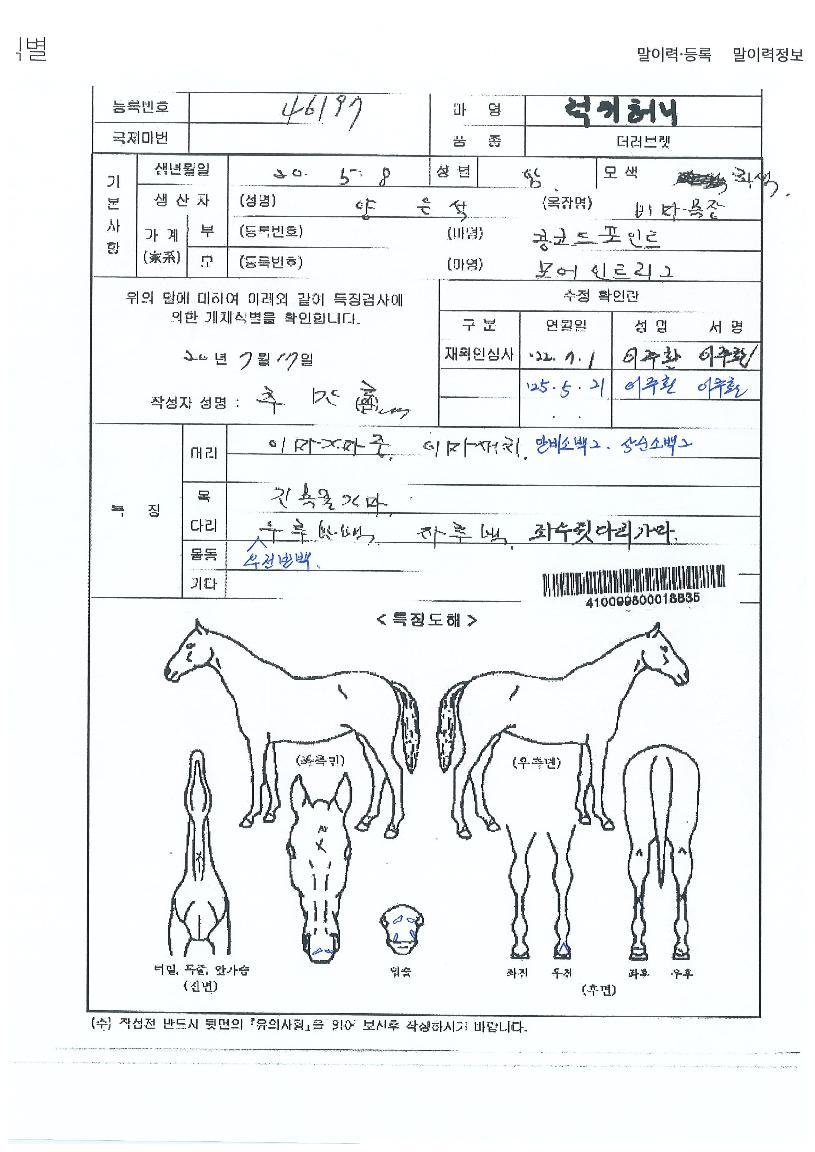 별
말이력·등록 말이력정보
등록번호 46197 마 명 럭키허니
국제마번 품 종 더러브렛
기본사항
생년월일 20. 5. 8 성별 암 모색 회색.
생 산 자 (성명) 양 은 석 (목장명)
가 계 (家系) 부 (등록번호) (마명) 콩코드포인트
모 (등록번호) (마명) 모어인트리그
위의 말에 대하여 아래와 같이 특징검사에
의한 개체식별을 확인합니다.
20년 7월 17일
작성자 성명 : 추
수정 확인란
구 분 연월일 성 명 서 명
재확인심사 '22. 7. 1 이주환 이주환
'25. 5. 21 이주환 이주환
. .
특 징
머리
목
다리 좌후백,
몸통 우전반백.
기타
410099800018835
< 특징도해 >
(좌측면)
(우측면)
턱밑, 목줄, 앞가슴
(전면)
입술
좌전 우전
좌후 우후
(후면)
(주) 작성전 반드시 뒷면의 『유의사항』을 읽어 보신후 작성하시기 바랍니다.